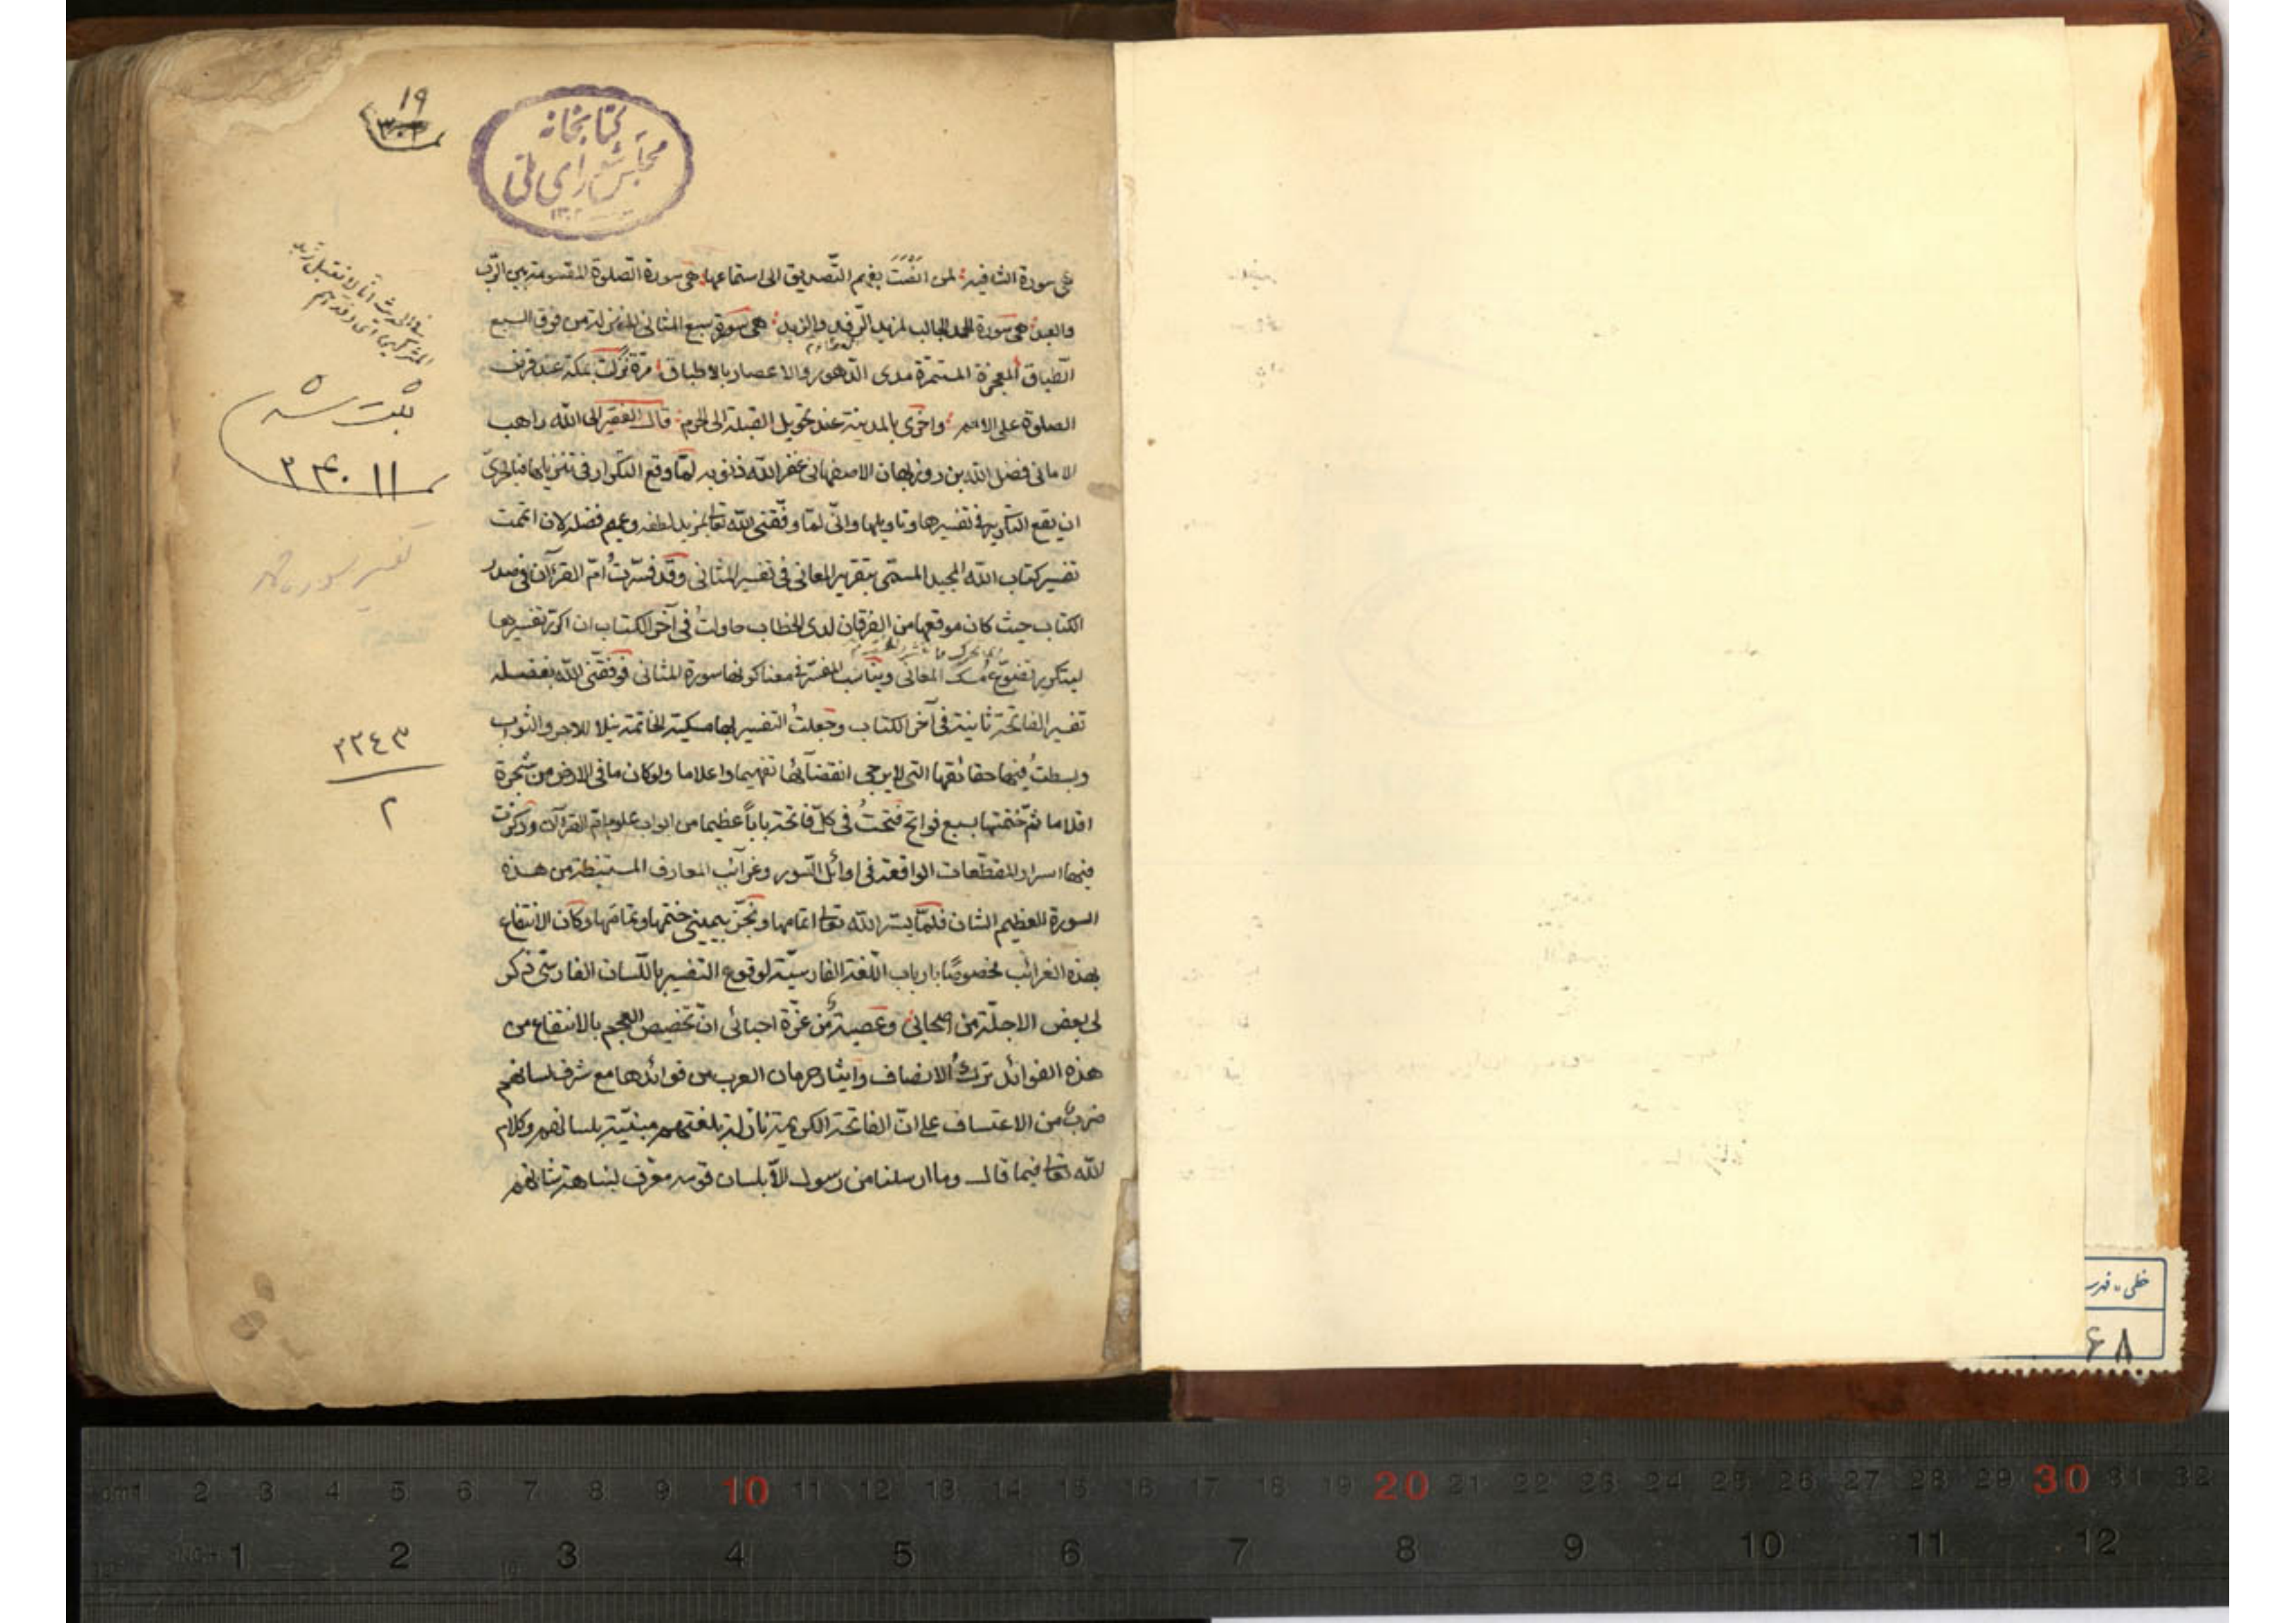 ١٩
كتابخانه
مجلس شورای ملی
١٣٠٢
هى سورة الشافية لمن انصت بفهم التصديق الى استماعها هى سورة الصلوة المقسومة بين الرب
والعبد هى سورة الحمد الجالب لمزيد الرفد والزبد هى سورة سبع المثانى المنزلة من فوق السبع
الطباق المعجزة المستمرة مدى الدهور والاعصار بالاطباق مرة نزلت بمكة عند فرض
الصلوة على الامم واخرى بالمدينة عند تحويل القبلة الى الحرم قال الفقير الى الله راهب
الامانى فضل الله بن روزبهان الاصفهانى غفر الله ذنوبه لما وقع التكرار فى تنزيلها فبالحرى
ان يقع التكرير فى تفسيرها وتاويلها وانى لما وفقنى الله تعالى لمزيد لطفه وعميم فضله لان اتممت
تفسير كتاب الله المجيد المسمى بتقرير المعانى فى تفسير المثانى وقد فسرت ام القرآن فى صدر
الكتاب حيث كان موقعها من الفرقان لدى الخطاب حاولت فى آخر الكتاب ان اكرر تفسيرها
ليتكرر تضوع مسك المعانى ويناسب المفسر فى معنا كونها سورة المثانى فوفقنى الله بفضله
تفسير الفاتحة ثانية فى آخر الكتاب وجعلت التفسير بها مسكية الخاتمة نيلا للاجر والثواب
وبسطت فيها حقائقها التى لا يرجى انقضائها تفهيما واعلاما ولو كان ما فى الارض من شجرة
اقلاما ثم ختمتها بسبع فواتح فتحت فى كل فاتحة بابا عظيما من ابواب علوم ام القرآن وذكرت
فيها اسرار المقطعات الواقعة فى اوائل السور وغرائب المعارف المستنبطة من هذه
السورة العظيم الشان فلما يسر الله تعالى اتمامها ونجز بيمينى ختمها وتمامها وكان الانتفاع
بهذه الغرائب مخصوصا بارباب اللغة الفارسية لوقوع التفسير باللسان الفارسى ذكر
لى بعض الاجلة من اصحابى وعصبة من غزة احبائى ان تخصيص العجم بالانتفاع من
هذه الفوائد ترك الانصاف وايثار حرمان العرب من فوائدها مع شرف لسانهم
ضرب من الاعتساف على ان الفاتحة الكريمة نازلة بلغتهم مبنية بلسانهم وكلام
الله تعالى فيما قال وما ارسلنا من رسول الا بلسان قومه معرف لنباهة شانهم
ثبت شد
٣٤٠١١
تفسير سوره
٢٢٤٣
٢
خطى - فهر
٦٨